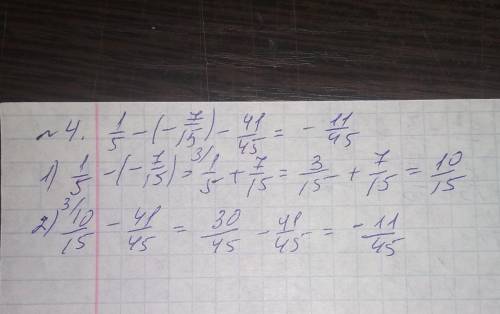 №4. 1/5 - (-7/15) - 41/45 = - 11/45
1) 1/5 - (-7/15) = 3/ 1/5 + 7/15 = 3/15 + 7/15 = 10/15
2) 3/ 10/15 - 41/45 = 30/45 - 41/45 = -11/45